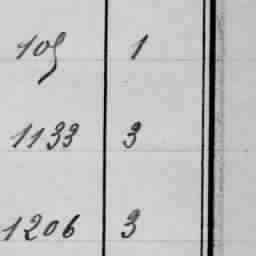 105 1
1133 3
1206 3